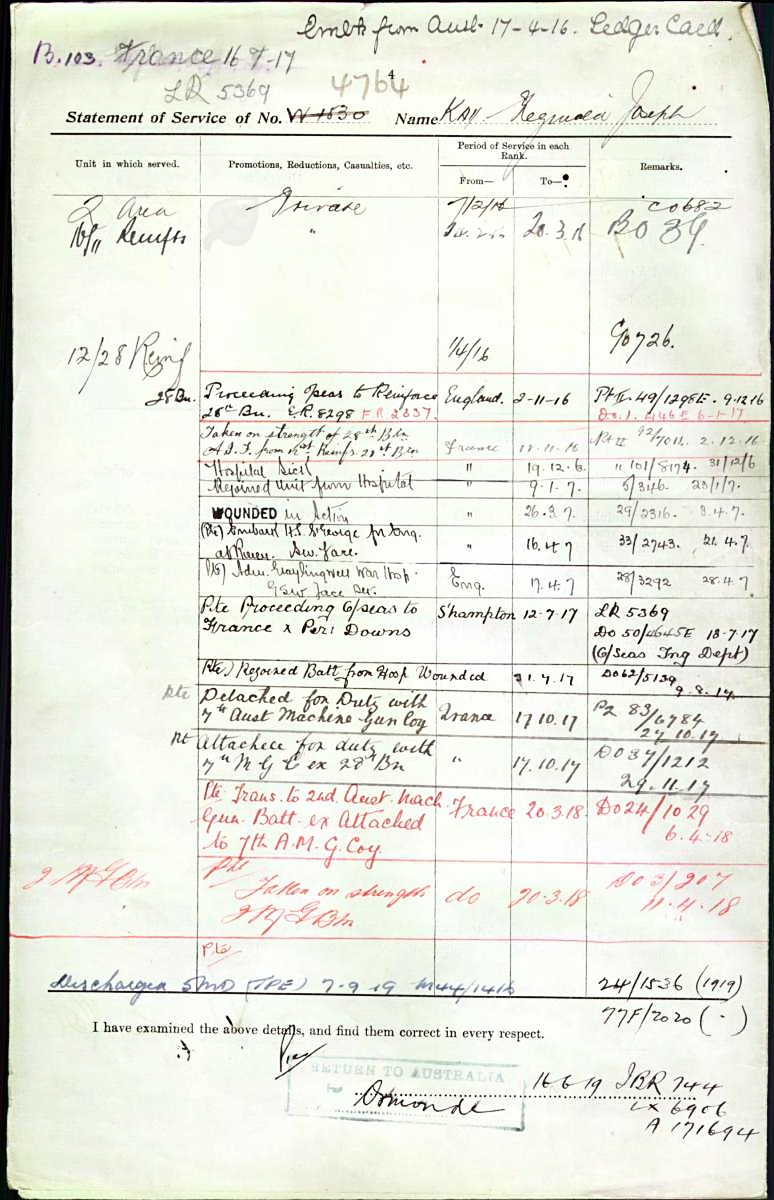 Embk from Aust. 17-4-16. Ledger Card.
B.103. France 16 7-17
LR 5369
4764
4
Statement of Service of No. W 1530 Name Kay Reginald Joseph
Unit in which served. Promotions, Reductions, Casualties, etc. Period of Service in each Rank. From— To— Remarks.
2 Area Private 7/2/16 CO682
16/11 Reinfts " 20.3.16 BO 39
12/28 Reinf 1/4/16 CO 726.
28 Bn. Proceeding Oseas to Reinforce England. 2-11-16 Pt II 49/1298E. 9.12.16
28th Bn. E.R. 8298 F.R 2337. Do.1. 446E 6-1-17
Taken on strength of 28th Bln
A.I.F. from Reinfs. 28th Bln France 11.11.16 Pt II 2.12.16
Hospital Sick " 19.12.6. " 101/8174. 31/12/6
Rejoined Unit from Hospital " 9.1.7. 5/346. 23/1/7.
WOUNDED in Action " 26.3.7. 29/2316. 3.4.7.
(Pte) Embark H.S. St George for Eng.
at Rouen. Sw. face. " 16.4.7 33/2743. 21.4.7.
(Pte) Adm. Graylingwell War Hosp.
GSW face Sev. Eng. 17.4.7 28/3292 28.4.7.
Pte Proceeding O/seas to S'hampton 12-7-17 LR 5369
France x Per: Downs DO 50/4645E 18-7-17
(O/Seas Tng Dept)
(Pte.) Rejoined Batt from Hosp Wounded 31.7.17 DO62/5139
9.8.17.
Pte Detached for Duty with
7th Aust Machine Gun Coy France 17.10.17 P2 83/6784
27.10.17
Pt Attached for duty with
7th M G C ex 28th Bn " 17.10.17 DO37/1212
29.11.17
Pte Trans. to 2nd Aust. Mach France 20.3.18. DO24/1029
Gun Batt. ex Attached 6.4.18
to 7th A.M.G. Coy
2 M G Bn Pte
Taken on strength do 20-3-18 DO3/207
2 M G Bn 11.4.18
Pte
Discharged 5MD (TPE) 7-9 19 M44/1416 24/1536 (1919)
77F/2020 ( " )
I have examined the above details, and find them correct in every respect.
RETURN TO AUSTRALIA
Ormonde
16-6-19 IRR 744
LX 6906
A 171694